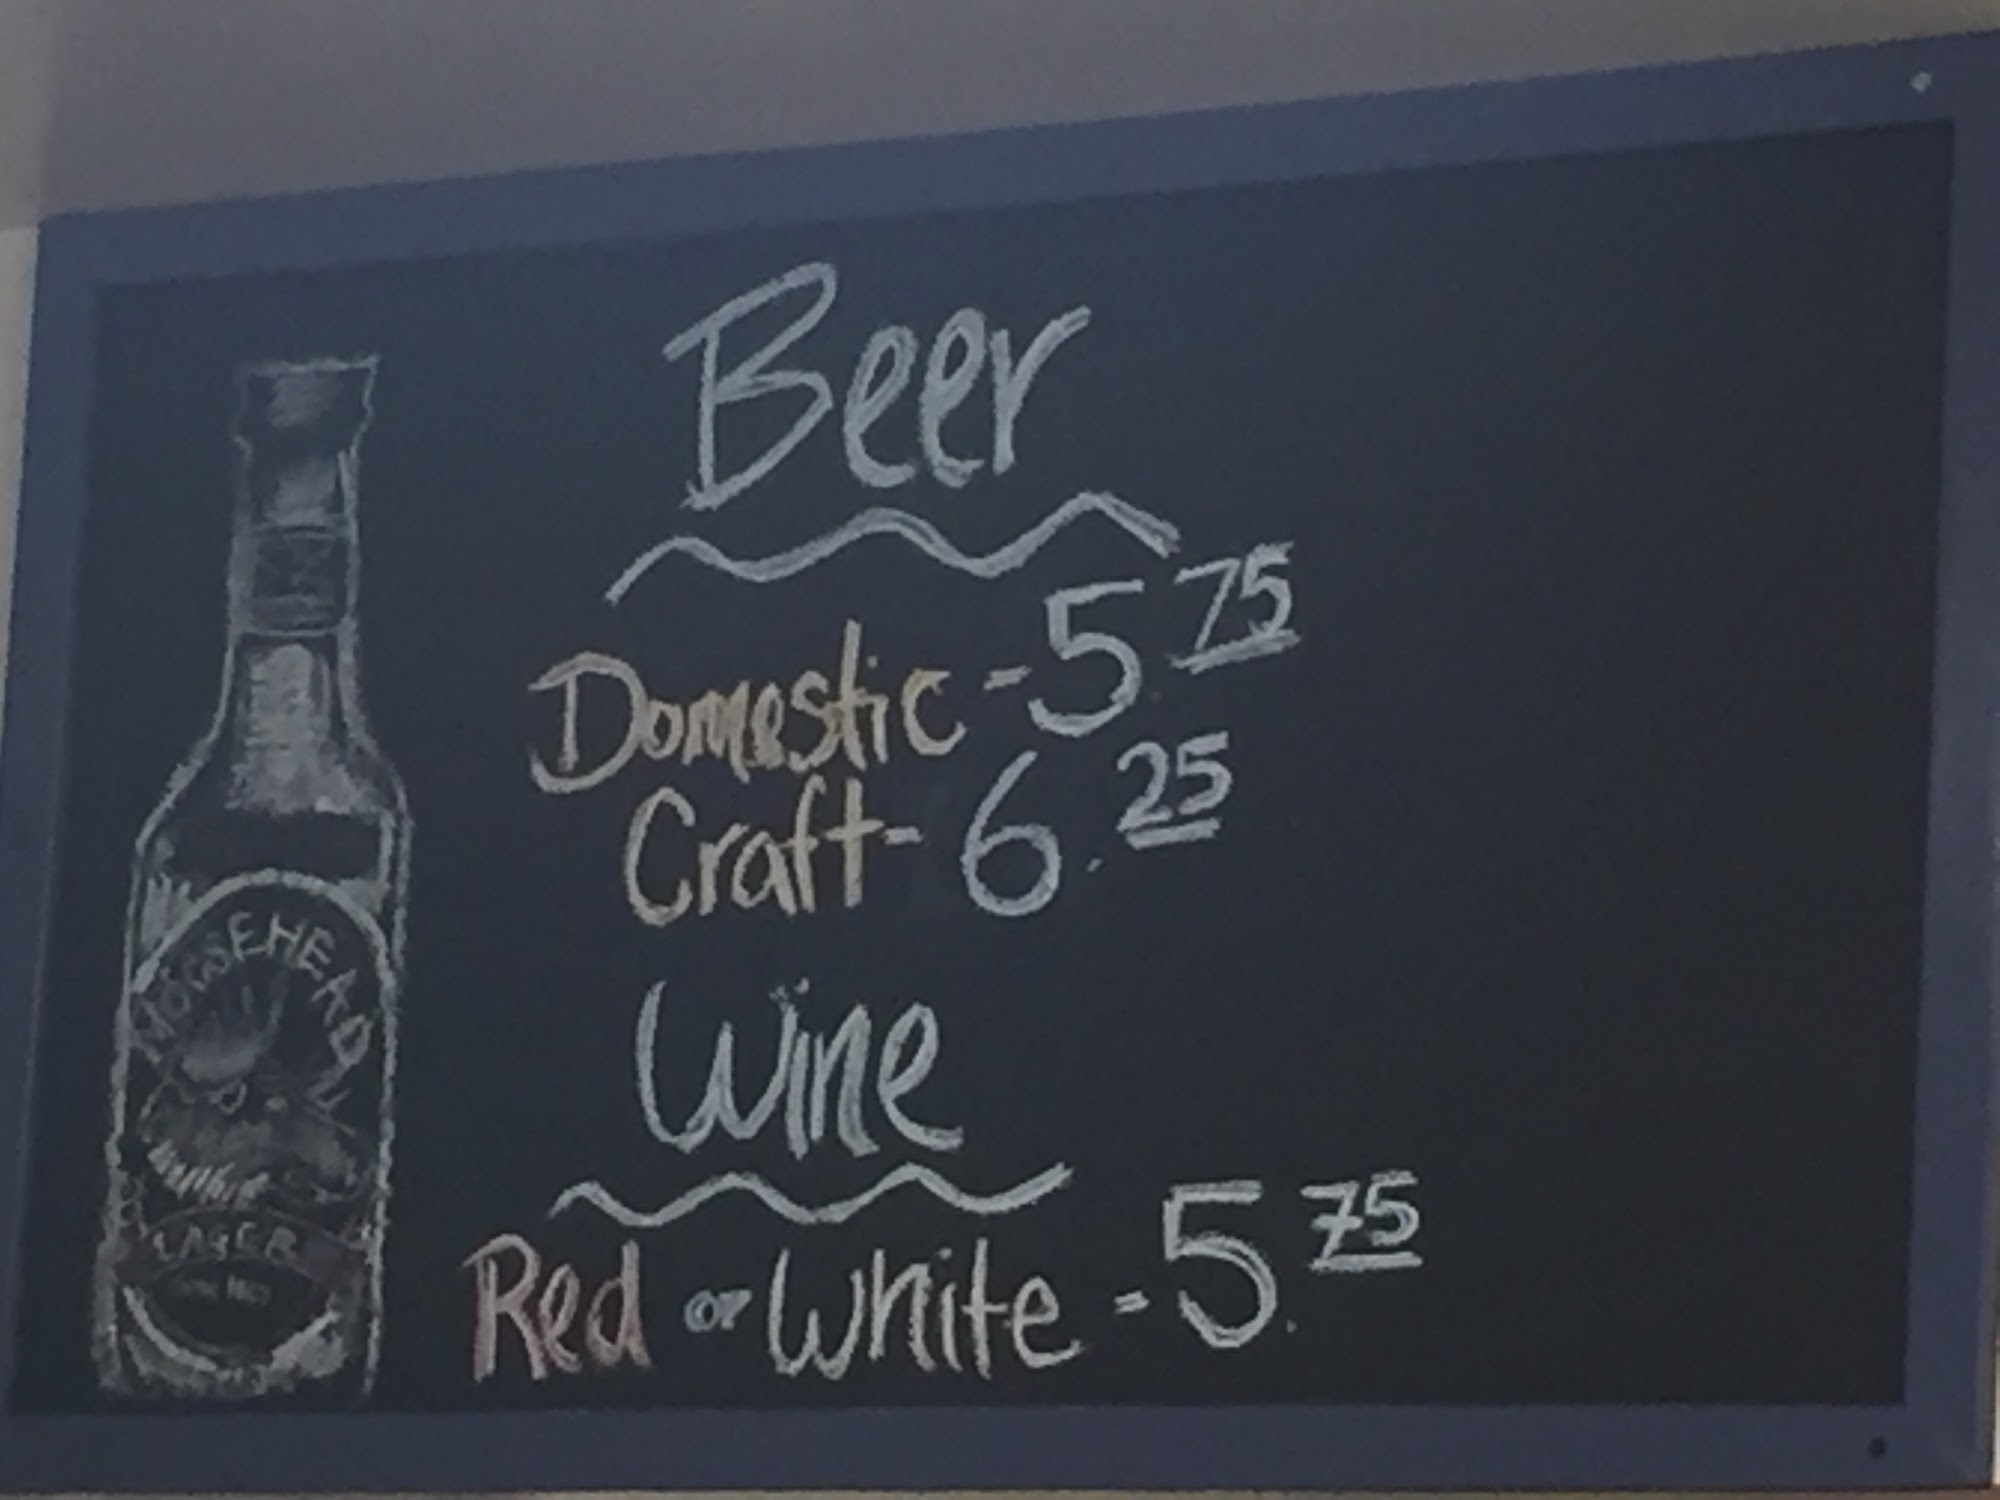 Beer
Domestic - 5.75
Craft - 6.25
Wine
Red or White - 5.75
MOOSEHEAD
LAGER